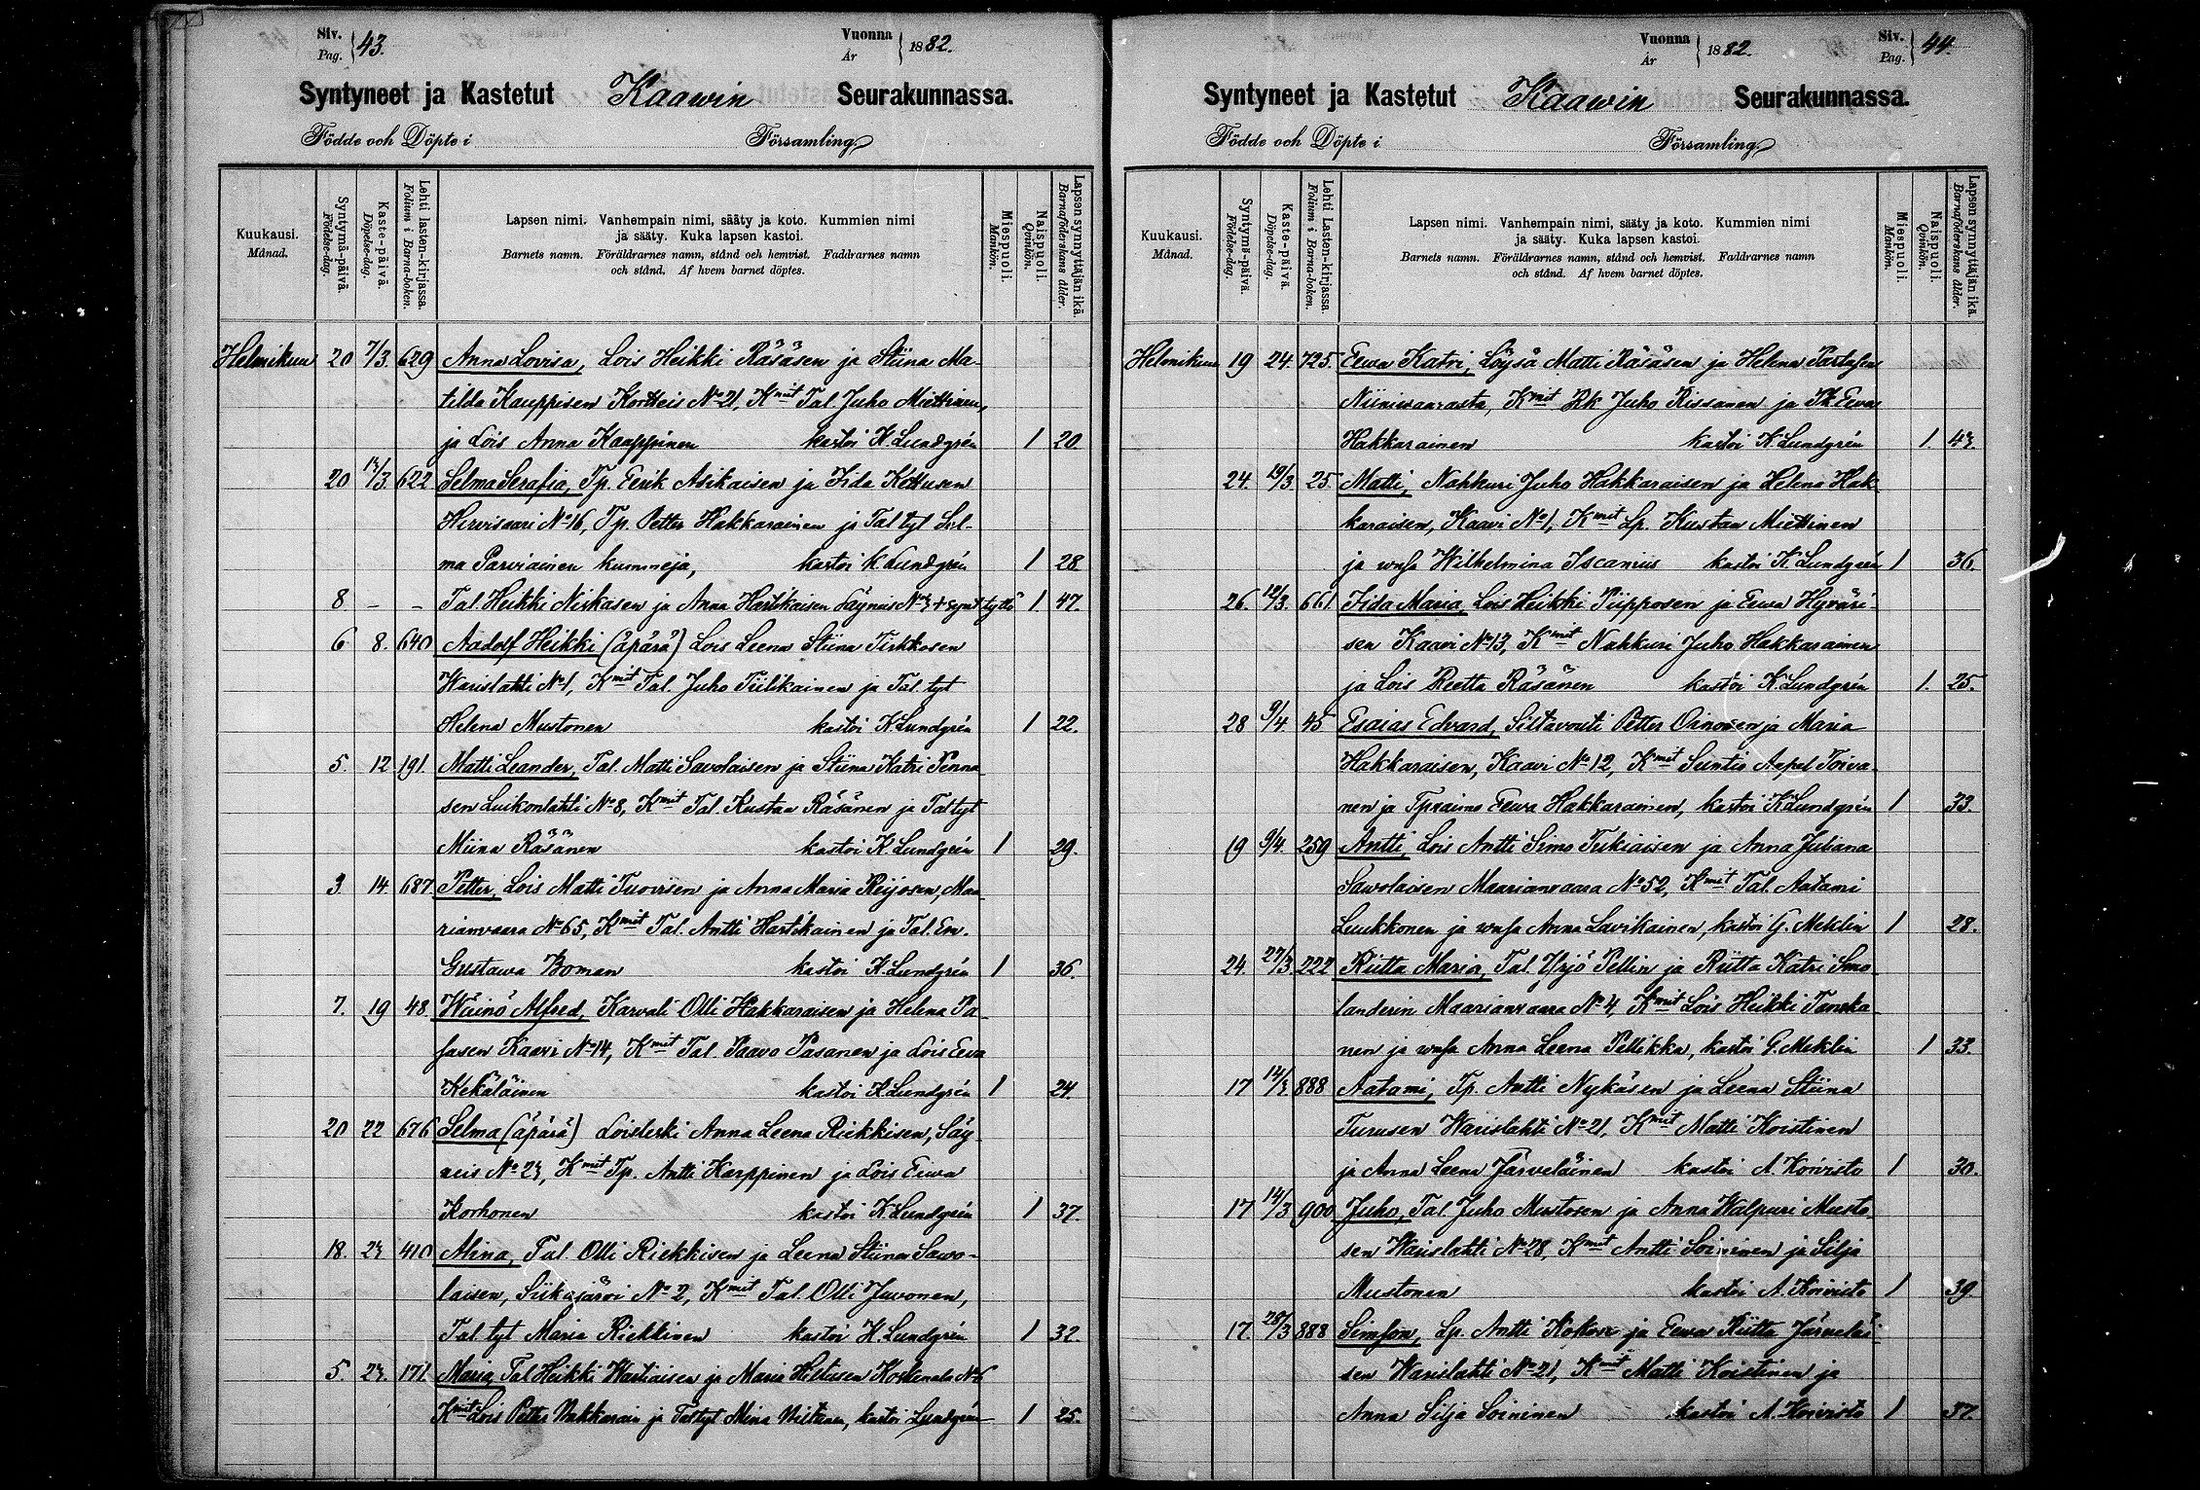 Siv. Pag. 43. Vuonna År 1882.
Syntyneet ja Kastetut Kaawin Seurakunnassa.
Födde och Döpte i Församling
Kuukausi. Månad.
Syntymä-päivä. Födelse-dag.
Kaste-päivä. Döpelse-dag.
Lehti lasten-kirjassa. Folium i Barna-boken.
Lapsen nimi. Vanhempain nimi, sääty ja koto. Kummien nimi
ja sääty. Kuka lapsen kastoi.
Barnets namn. Föräldrarnes namn, stånd och hemvist. Faddrarnes namn
och stånd. Af hvem barnet döptes.
Miespuoli. Mankön.
Naispuoli. Qvinkön.
Lapsen synnyttäjän ikä Barnaföderskans ålder.
Helmikuu 20 7/3. 629 Anna Lovisa, Lois Heikki Räsäsen ja Stiina Ma-
tilda Kauppisen Kortteis No 21, Kmit Tal. Juho Miettinen,
ja Lois Anna Kauppinen kastoi K. Lundgrén 1 20.
20 14/3. 622 Selma Serafia, Tp. Eerik Asikaisen ja Iida Kettusen
Hirvisaari No 16, Tp. Petter Hakkarainen ja Tal tyt Sel-
ma Parviainen kummeja, kastoi K Lundgrén 1 28
8 - - Tal. Heikki Niskasen ja Anna Hartikaisen Säyneis No 3 + synt. tyttö 1. 47.
6 8. 640 Aadolf Heikki (äpärä) Lois Leena Stiina Tirkkosen
Warislahti No 1, Kmit Tal. Juho Tiilikainen ja Tal. tyt
Helena Mustonen kastoi K. Lundgrén 1 22.
5. 12 191. Matti Leander, Tal. Matti Savolaisen ja Stiina Katri Penna
sen Luikonlahti No 8, Kmit Tal. Kustaa Räsänen ja Tal tyt
Miina Räsänen kastoi K. Lundgrén 1 29.
3 14. 687. Petter, Lois Matti Tuovisen ja Anna Maria Reijosen, Maa
rianvaara No 65, Kmit Tal. Antti Hartikainen ja Tal. Em.
Gustawa Boman kastoi K. Lundgrén 1 36.
7. 19 48 Wäinö Alfred, Karvali Olli Hakkaraisen ja Helena Pa
sasen Kaavi No 14, Kmit Tal. Paavo Pasanen ja Lois Eeva
Kekäläinen kastoi K. Lundgrén 1 24.
20 22 676 Selma (äpärä) Loisleski Anna Leena Riekkisen, Säy
neis No 23, Kmit Tp. Antti Karppinen ja Lois Eeva
Korhonen kastoi K. Lundgrén 1 37.
18. 23 410 Alina, Tal. Olli Riekkisen ja Leena Stiina Savo-
laisen, Siikajärvi No 2, Kmit Tal. Olli Juvonen,
Tal. tyt Maria Riekkinen kastoi K. Lundgrén 1 32.
5 23. 171. Maria, Tal Heikki Wartiaisen ja Maria Hiltusen
Kmit Lois Petter ja Tal tyt Miina kastoi Lundgrén 1 25.
Vuonna År 1882. Siv. Pag. 44.
Syntyneet ja Kastetut Kaawin Seurakunnassa.
Födde och Döpte i Församling
Kuukausi. Månad.
Syntymä-päivä. Födelse-dag.
Kaste-päivä. Döpelse-dag.
Lehti Lasten-kirjassa. Folium i Barna-boken.
Lapsen nimi. Vanhempain nimi, sääty ja koto. Kummien nimi
ja sääty. Kuka lapsen kastoi.
Barnets namn. Föräldrarnes namn, stånd och hemvist. Faddrarnes namn
och stånd. Af hvem barnet döptes.
Miespuoli. Mankön.
Naispuoli. Qvinkön.
Lapsen synnyttäjän ikä Barnaföderskans ålder.
Helmikuu 19 24. 725. Eewa Katri, Löysä Matti Räsäsen ja Helena
Niinivaarasta, Kmit Juho Rissanen ja Eewa
Hakkarainen kastoi K. Lundgrén 1. 43.
24. 19/3. 25. Matti, Nahkuri Juho Hakkaraisen ja Helena Hak
karaisen, Kaavi No 1, Kmit Lp. Kustaa Miettinen
ja wmsa Wilhelmina Iscanius kastoi K. Lundgrén 1 36.
26. 12/3. 661. Iida Maria, Lois Heikki Piipposen ja Eewa Hyväri
sen Kaavi No 13, Kmit Nahkuri Juho Hakkarainen
ja Lois Reetta Räsänen kastoi K. Lundgrén 1. 25.
28 9/4. 45 Esaias Edvard, Siltavouti Petter Oinosen ja Maria
Hakkaraisen, Kaavi No 12, Kmit Suntio Aapel Toiva
nen ja Eewa Hakkarainen, kastoi K. Lundgrén 1 33.
19 9/4. 259 Antti, Lois Antti Simo Tukiaisen ja Anna Juliana
Sawolaisen Maarianvaara No 52, Kmit Tal. Aatami
Luukkonen ja wmsa Anna Lavikainen, kastoi G. Meklin 1 28.
24. 27/3. 222 Riitta Maria, Tal. Yrjö Pellin ja Riitta Katri Smo
landerin Maarianvaara No 4, Kmit Lois Heikki Tanska
nen ja wmsa Anna Leena Pellikka, kastoi G. Meklin 1 33.
17 14/3 888 Aatami, Tp. Antti Nykäsen ja Leena Stiina
Turusen Warislahti No 21, Kmit Matti Koistinen
ja Anna Leena Järveläinen kastoi A. Koivisto 1 30.
17 14/3 900 Juho, Tal. Juho Mustosen ja Anna Walpuri Musto
sen Warislahti No 28, Kmit Antti Soininen ja Silja
Mustonen kastoi A. Koivisto 1 39.
17. 28/3 888 Simson, Lp. Antti ja Eewa Riitta Järveläi
sen Warislahti No 21, Kmit Matti Koistinen ja
Anna Silja Soininen kastoi A. Koivisto 1 37.